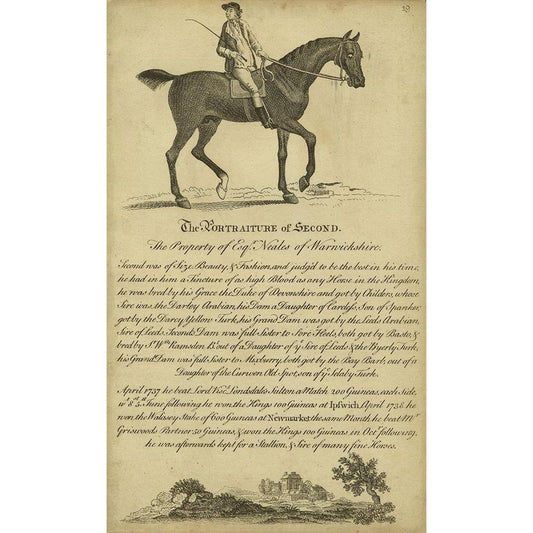 29
The PORTRAITURE of SECOND.
The Property of Esqr. Neales of Warwickshire.
Second was of Size, Beauty, & Fashion, and judg'd to be the best in his time,
he had in him a Tincture of as high Blood as any Horse in the Kingdom,
he was bred by his Grace the Duke of Devonshire and got by Childers, whose
Sire was the Darley Arabian, his Dam a Daughter of Careless, Son of Spanker,
got by the Darcey Yellow Turk, his Grand Dam was got by the Leeds Arabian,
Sire of Leeds. Seconds Dam was full Sister to Sore Heels, both got by Basto, &
bred by Sr. Wm. Ramsden Bt. out of a Daughter of ye Sire of Leeds & the Byerly Turk,
his Grand Dam was full Sister to Mixburry, both got by the Bay Barb, out of a
Daughter of the Curwen Old Spot, son of ye Selaby Turk.
April 1737 he beat Lord Viscs. Londsdales Sulton a Match 200 Guineas, each Side,
wt. 8st. 5lb. June following he won the Kings 100 Guineas at Ipswich, April 1738 he
won the Walasey Stake of 600 Guineas at Newmarket, the same Month, he beat Mr.
Griswoods Partner 50 Guineas, & won the Kings 100 Guineas in Octr. following,
he was afterwards kept for a Stallion, & Sire of many fine Horses.